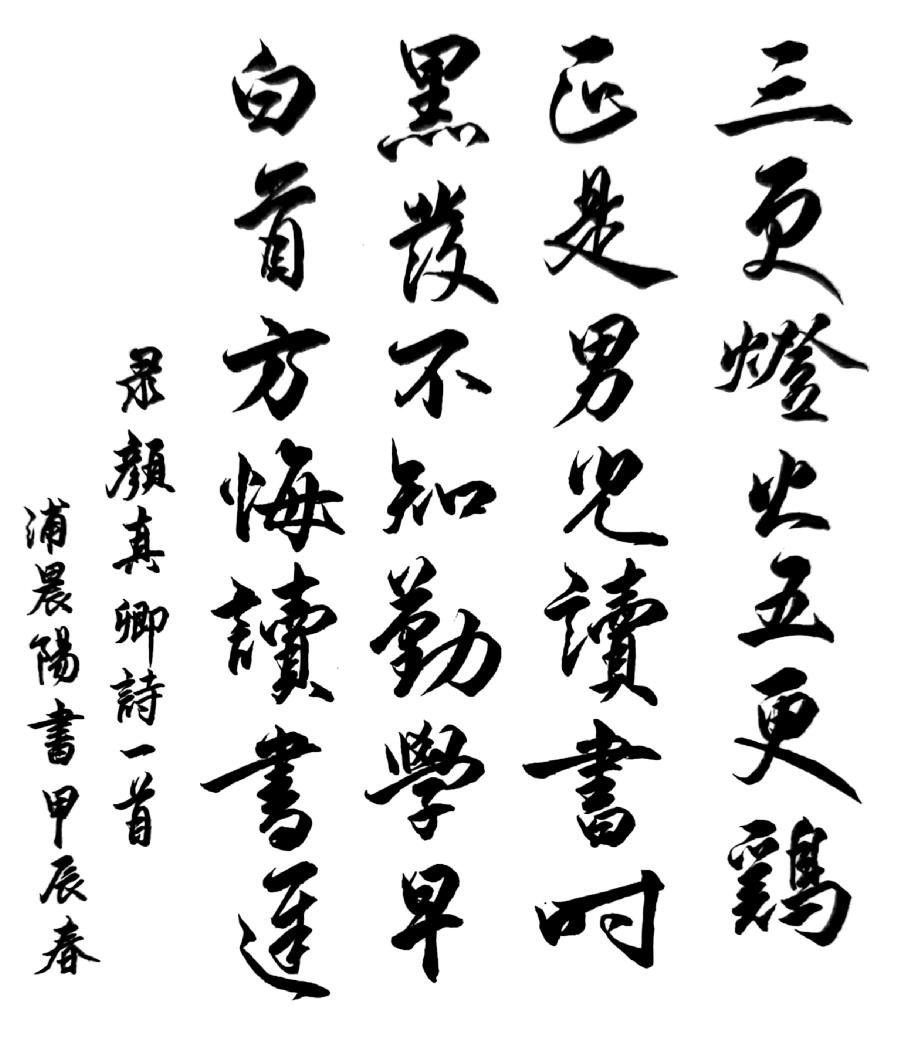 三更燈火五更鷄
正是男児讀書时
黑發不知勤學早
白首方悔讀書遲
录顔真卿詩一首
浦晨陽書甲辰春